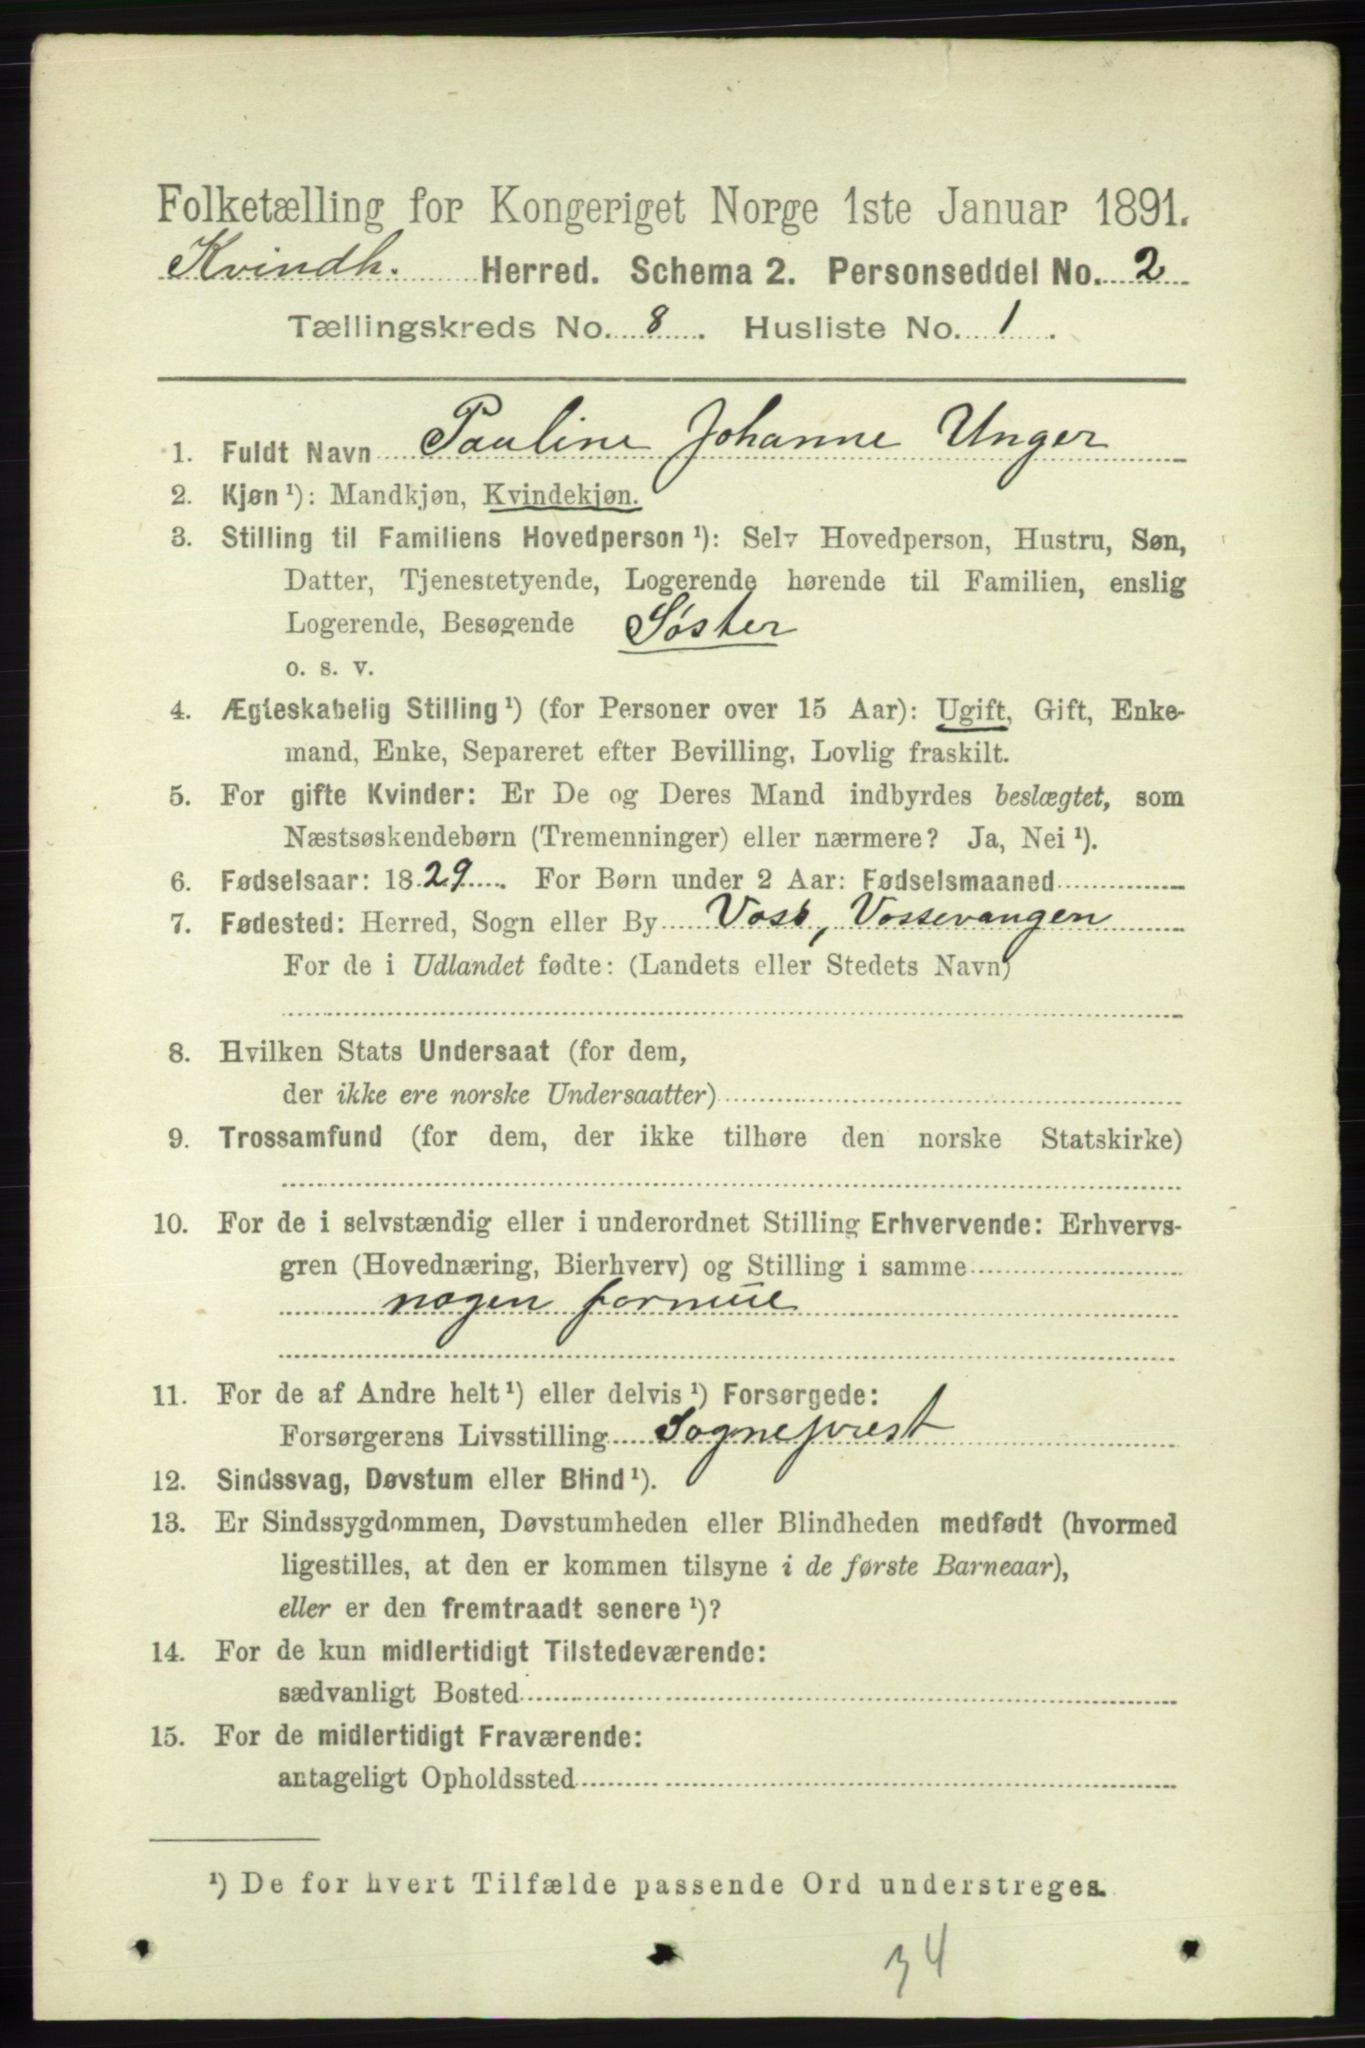 Folketælling for Kongeriget Norge 1ste Januar 1891.
Kvindh. Herred. Schema 2. Personseddel No. 2
Tællingskreds No. 8. Husliste No. 1.
1. Fuldt Navn Pauline Johanne Unger
2. Kjøn ¹): Mandkjøn, Kvindekjøn.
3. Stilling til Familiens Hovedperson ¹): Selv Hovedperson, Hustru, Søn,
Datter, Tjenestetyende, Logerende hørende til Familien, enslig
Logerende, Besøgende Søster
o. s. v.
4. Ægteskabelig Stilling ¹) (for Personer over 15 Aar): Ugift, Gift, Enke-
mand, Enke, Separeret efter Bevilling, Lovlig fraskilt.
5. For gifte Kvinder: Er De og Deres Mand indbyrdes beslægtet, som
Næstsøskendebørn (Tremenninger) eller nærmere? Ja, Nei ¹).
6. Fødselsaar: 1829. For Børn under 2 Aar: Fødselsmaaned
7. Fødested: Herred, Sogn eller By Voss, Vossevangen
For de i Udlandet fødte: (Landets eller Stedets Navn)
8. Hvilken Stats Undersaat (for dem,
der ikke ere norske Undersaatter)
9. Trossamfund (for dem, der ikke tilhøre den norske Statskirke)
10. For de i selvstændig eller i underordnet Stilling Erhvervende: Erhvervs-
gren (Hovednæring, Bierhverv) og Stilling i samme
nogen formue
11. For de af Andre helt ¹) eller delvis ¹) Forsørgede:
Forsørgerens Livsstilling Sogneprest
12. Sindssvag, Døvstum eller Blind ¹).
13. Er Sindssygdommen, Døvstumheden eller Blindheden medfødt (hvormed
ligestilles, at den er kommen tilsyne i de første Barneaar),
eller er den fremtraadt senere ¹)?
14. For de kun midlertidigt Tilstedeværende:
sædvanligt Bosted
15. For de midlertidigt Fraværende:
antageligt Opholdssted
¹) De for hvert Tilfælde passende Ord understreges.
34